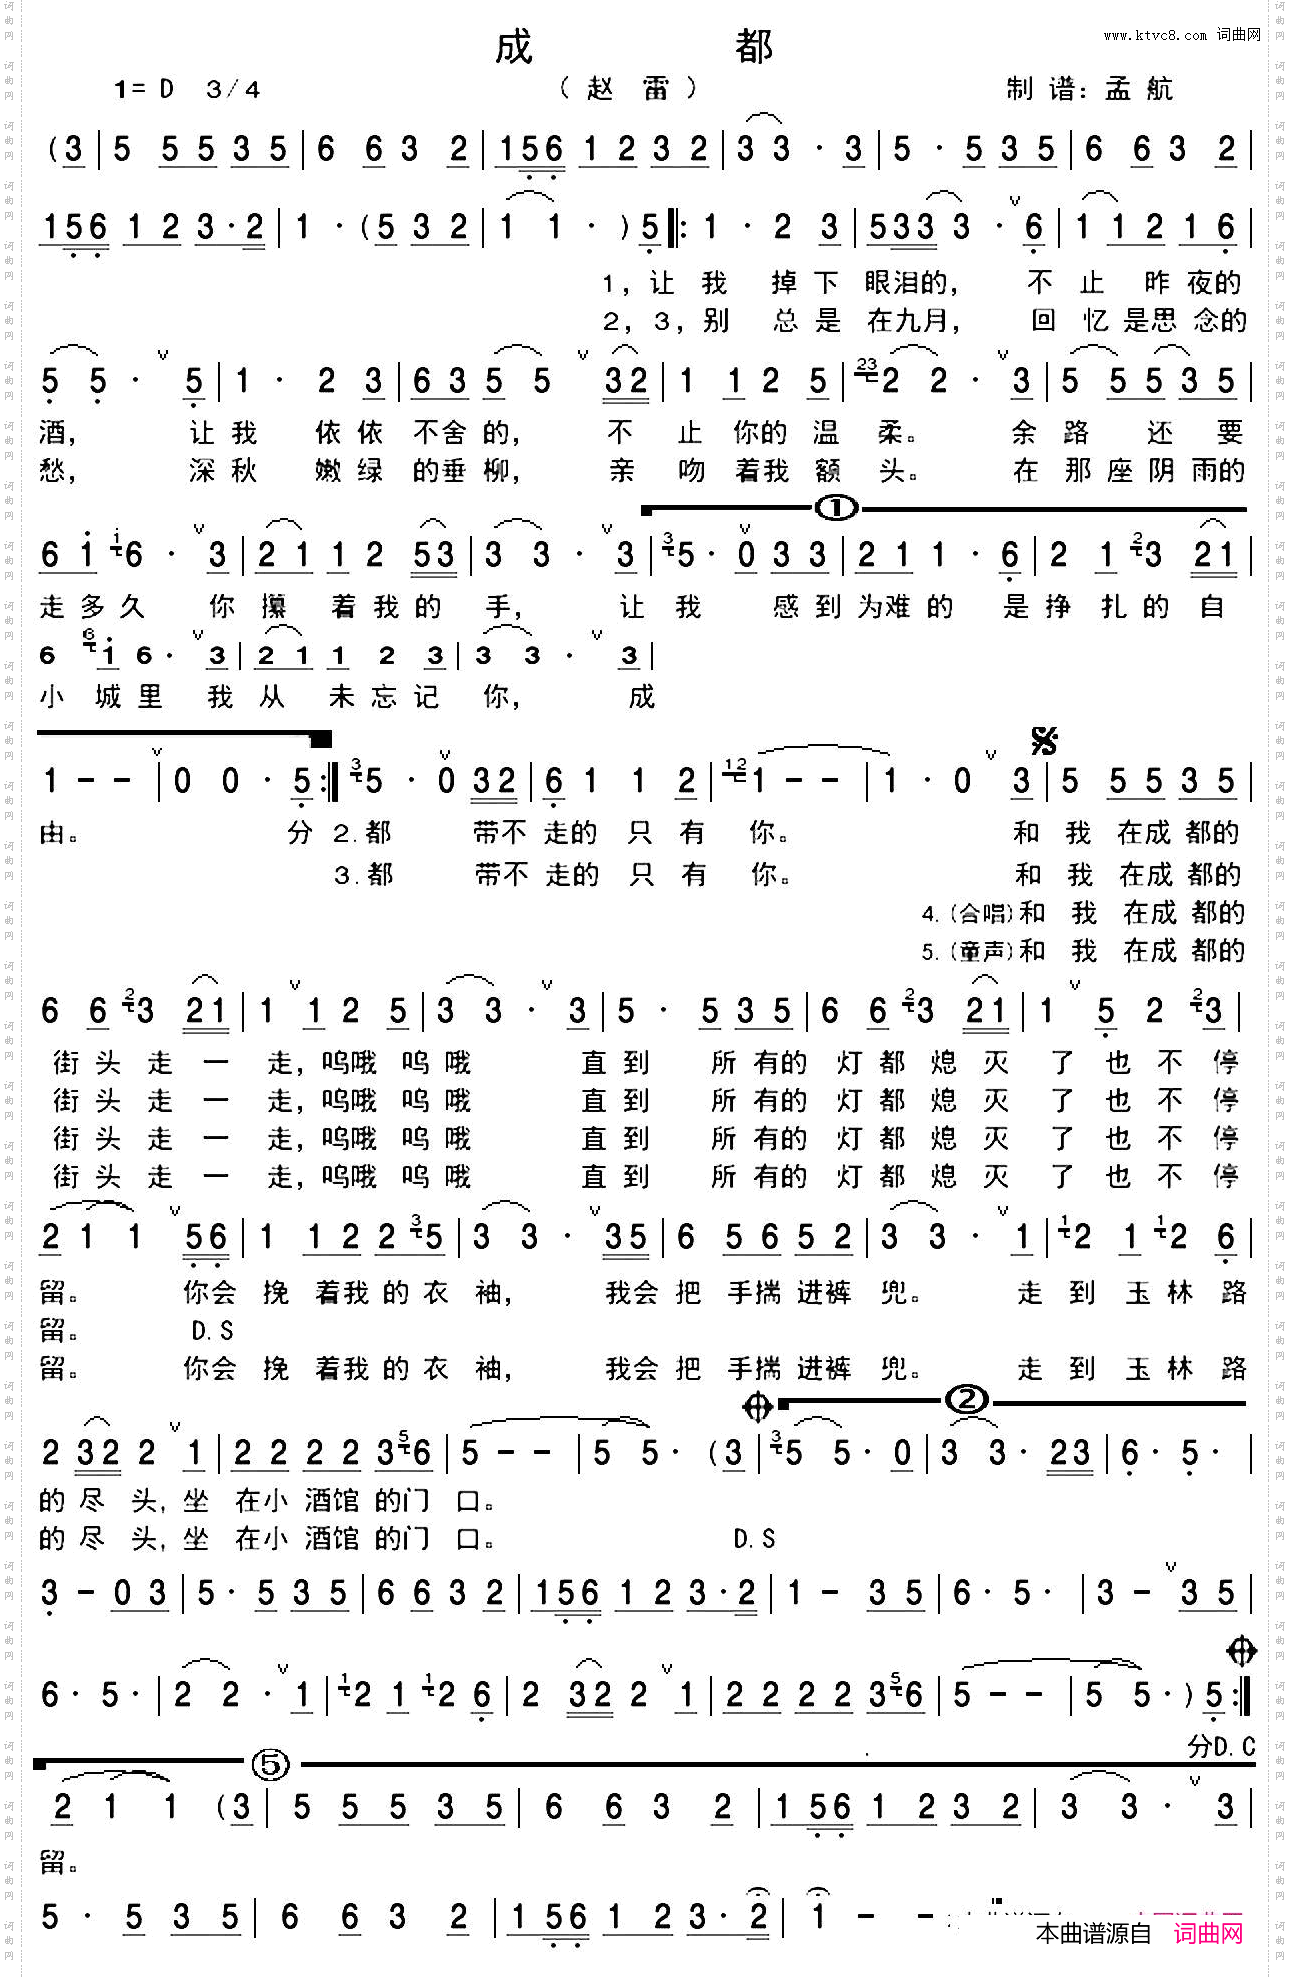 www.ktvc8.com 词曲网
成 都
1= D 3/4 （赵 雷） 制 谱：孟 航
(3 | 5 5 5 3 5 | 6 6 3 2 | 1 5 6 1 2 3 2 | 3 3 · 3 | 5 · 5 3 5 | 6 6 3 2 |
1 5 6 1 2 3 · 2 | 1 · (5 3 2 | 1 1 · ) 5 ‖: 1 · 2 3 | 5 3 3 3 · 6 | 1 1 2 1 6 |
1，让 我 掉 下 眼泪的， 不 止 昨 夜的
2，3，别 总 是 在九月， 回 忆 是思 念的
5 5 · 5 | 1 · 2 3 | 6 3 5 5 3 2 | 1 1 2 5 | 23 2 2 · 3 | 5 5 5 3 5 |
酒， 让 我 依 依 不舍 的， 不 止 你的 温 柔。 余 路 还 要
愁， 深 秋 嫩 绿 的垂 柳， 亲 吻 着我 额 头。 在 那 座 阴 雨的
①
6 i i 6 · 3 | 2 1 1 2 5 3 | 3 3 · 3 | 3 5 · 0 3 3 | 2 1 1 · 6 | 2 1 2 3 2 1 |
走 多 久 你 攥 着 我 的 手， 让 我 感 到 为难 的 是 挣 扎 的 自
6 6 i 6 · 3 | 2 1 1 2 3 | 3 3 · 3 |
小 城 里 我 从 未 忘 记 你， 成
1 – – | 0 0 · 5 :‖ 3 5 · 0 3 2 | 6 1 1 2 | 12 1 – – | 1 · 0 3 | 5 5 5 3 5 |
由。 分 2.都 带不 走的 只 有 你。 和 我 在成 都的
3.都 带不 走的 只 有 你。 和 我 在成 都的
4.(合唱)和 我 在成 都的
5.(童声)和 我 在成 都的
6 6 2 3 2 1 | 1 1 2 5 | 3 3 · 3 | 5 · 5 3 5 | 6 6 2 3 2 1 | 1 5 2 2 3 |
街 头 走 一 走，呜哦 呜 哦 直 到 所 有的 灯 都 熄 灭 了 也 不 停
街 头 走 一 走，呜哦 呜 哦 直 到 所 有的 灯 都 熄 灭 了 也 不 停
街 头 走 一 走，呜哦 呜 哦 直 到 所 有的 灯 都 熄 灭 了 也 不 停
街 头 走 一 走，呜哦 呜 哦 直 到 所 有的 灯 都 熄 灭 了 也 不 停
2 1 1 5 6 | 1 1 2 2 3 5 | 3 3 · 3 5 | 6 5 6 5 2 | 3 3 · 1 | 1 2 1 1 2 6 |
留。 你会 挽 着我 的 衣 袖， 我会 把 手揣 进裤 兜。 走 到 玉 林 路
留。 D.S
留。 你会 挽 着我 的 衣 袖， 我会 把 手揣 进裤 兜。 走 到 玉 林 路
②
2 3 2 2 1 | 2 2 2 2 3 5 6 | 5 – – | 5 5 · (3 | 3 5 5 · 0 | 3 3 · 2 3 | 6 · 5 · |
的 尽 头，坐 在小 酒馆 的门 口。
的 尽 头，坐 在小 酒馆 的门 口。 D.S
3 – 0 3 | 5 · 5 3 5 | 6 6 3 2 | 1 5 6 1 2 3 · 2 | 1 – 3 5 | 6 · 5 · | 3 – 3 5 |
6 · 5 · | 2 2 · 1 | 1 2 1 1 2 6 | 2 3 2 2 1 | 2 2 2 2 3 5 6 | 5 – – | 5 5 · ) 5 :‖
分D.C
⑤
2 1 1 (3 | 5 5 5 3 5 | 6 6 3 2 | 1 5 6 1 2 3 2 | 3 3 · 3 |
留。
5 · 5 3 5 | 6 6 3 2 | 1 5 6 1 2 3 · 2 | 1 – –
本曲谱源自 词曲网